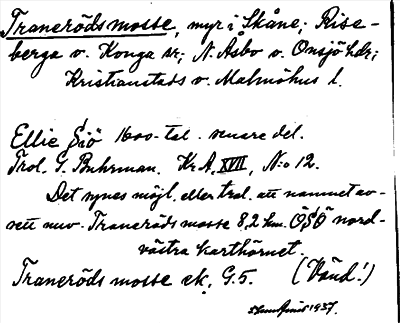 Traneröds mosse, myr i Skåne; Rise-
berga o. Konga sr; N. Åsbo o. Onsjö hdr;
Kristianstads o. Malmöhus l.
Ellie Siö 1600-tal. senare del.
Trol. G. Buhrman. Kr. A. XVIII, N:o 12.
Det synes möjl. eller trol. att namnet av-
sett nuv. Traneröds mosse 8,2 km. ÖSÖ nord-
västra karthörnet.
Traneröds mosse ek. G. 5. (Vänd!)
1937.